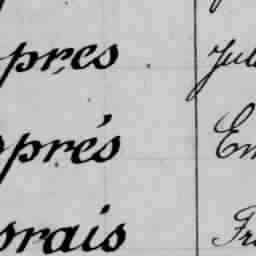 pres Jul
prés Em
rais Fr